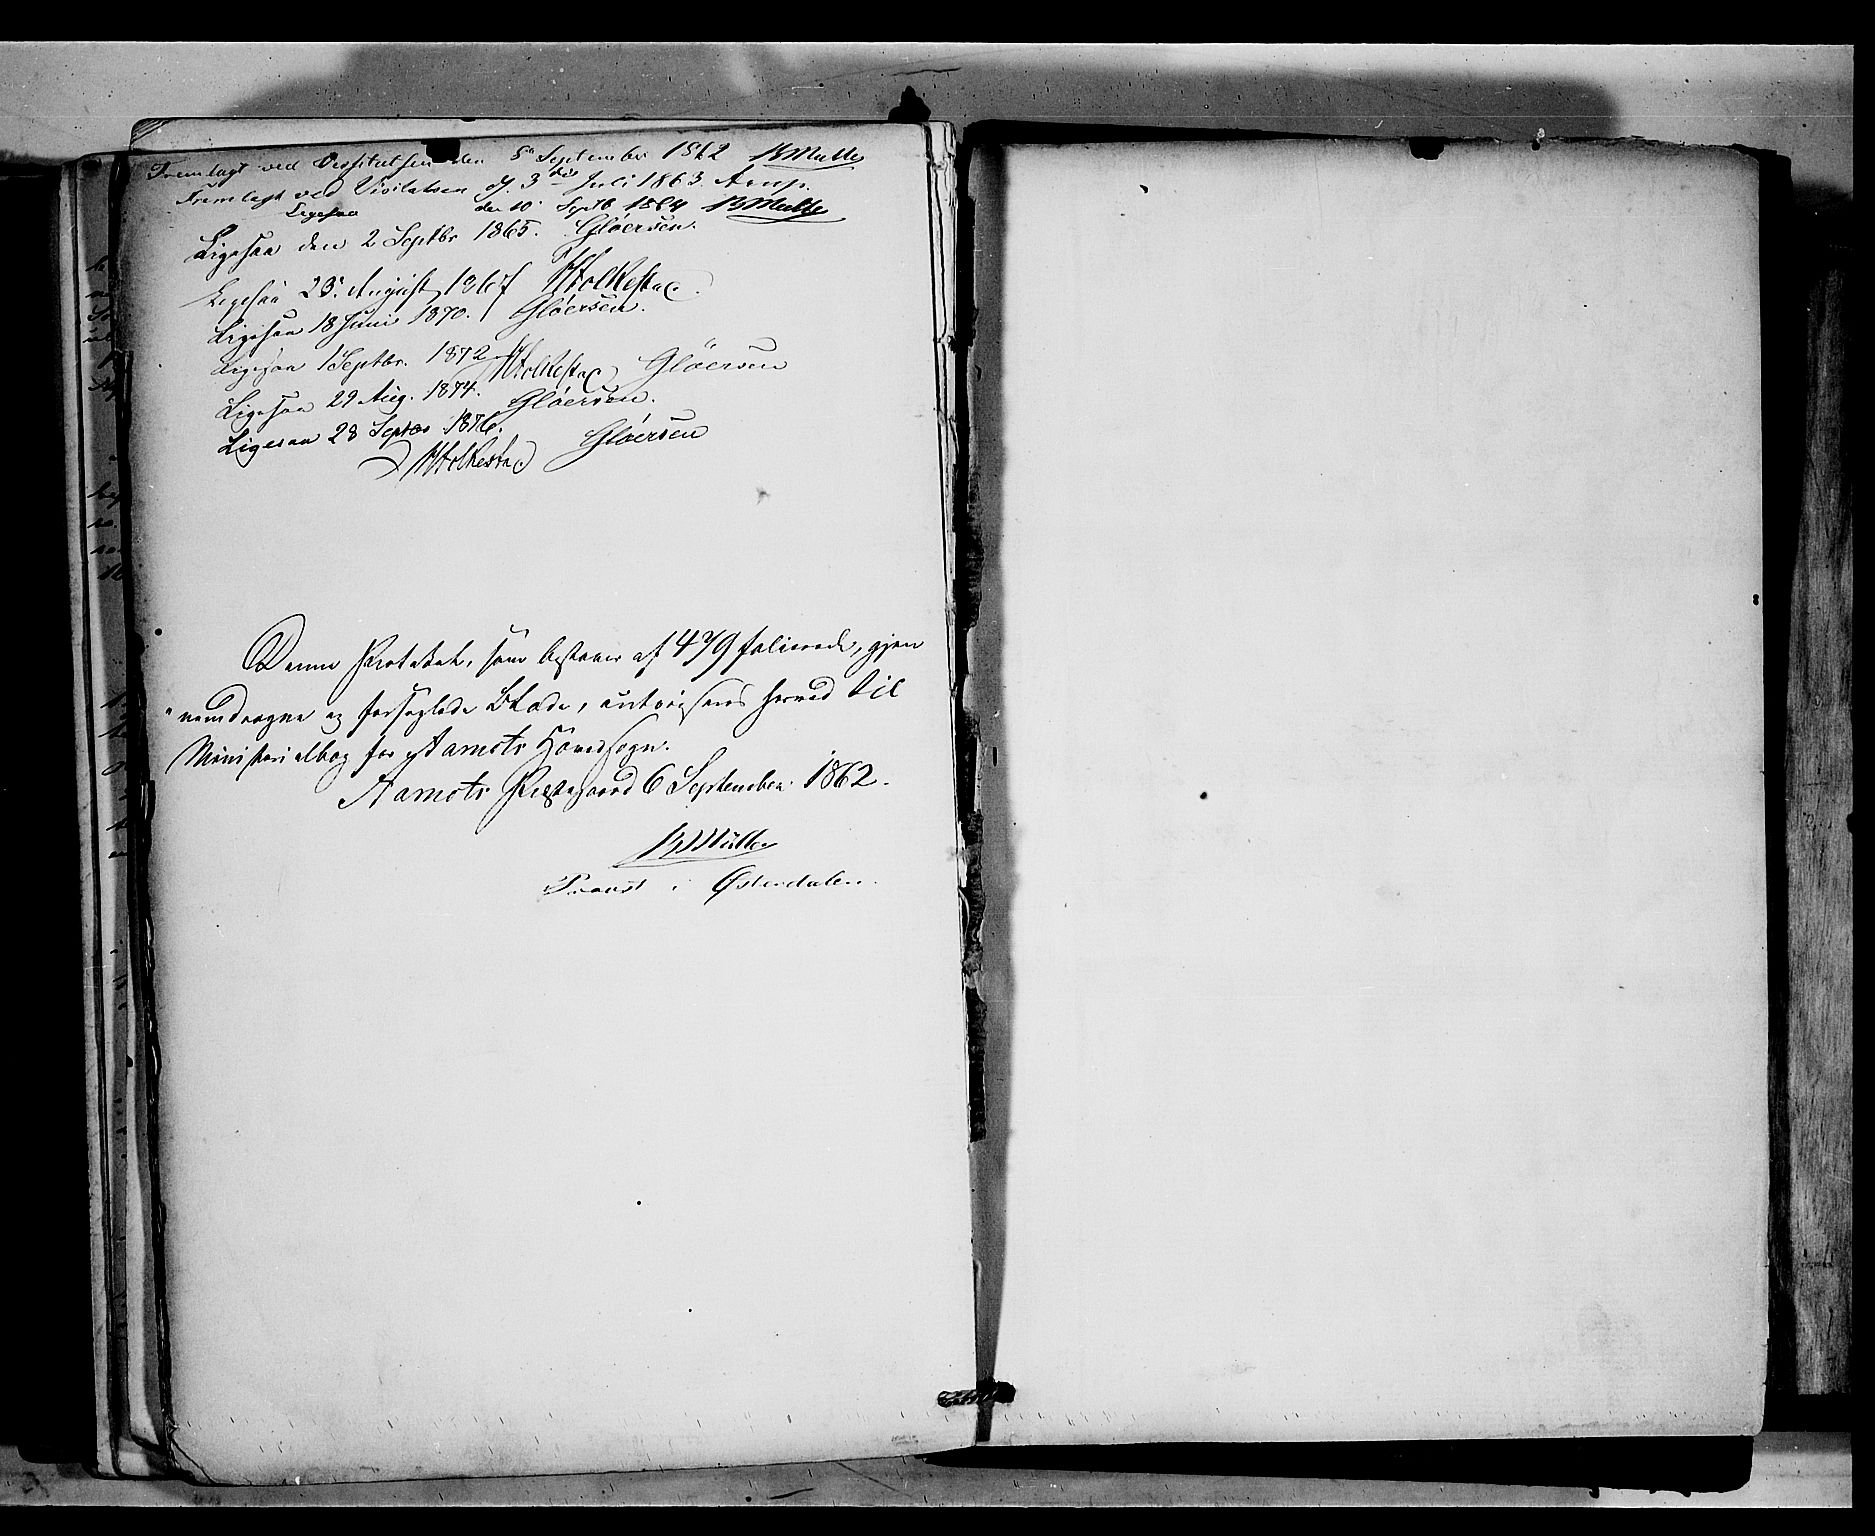 Fremlagt ved Visitatsen den 8de September 1862 BMüller
Fremlagt ved Visitatsen d. 3die Juli 1863. Arup.
Ligesaa den 10 Septb 1864 BMüller
Ligesaa den 2 Septbr 1865. Gløersen.
Ligesaa 25. August 1867 HFolkestad.
Ligesaa 18 Juni 1870. Gløersen.
Ligesaa 1 Septbr. 1872 HFolkestad Gløersen
Ligesaa 29 Aug. 1874. Gløersen.
Ligesaa 28 Septbr 1876. Gløersen
HFolkestad
Denne Protokol, som bestaaer af 479 folierede, gjen
nemdragne og forseglede Blade, autoriseres herved til
Ministerialbog for Aamots Hovedsogn.
Aamots Præstegaard 6 September 1862.
BMüller
Provst i Østerdalen.